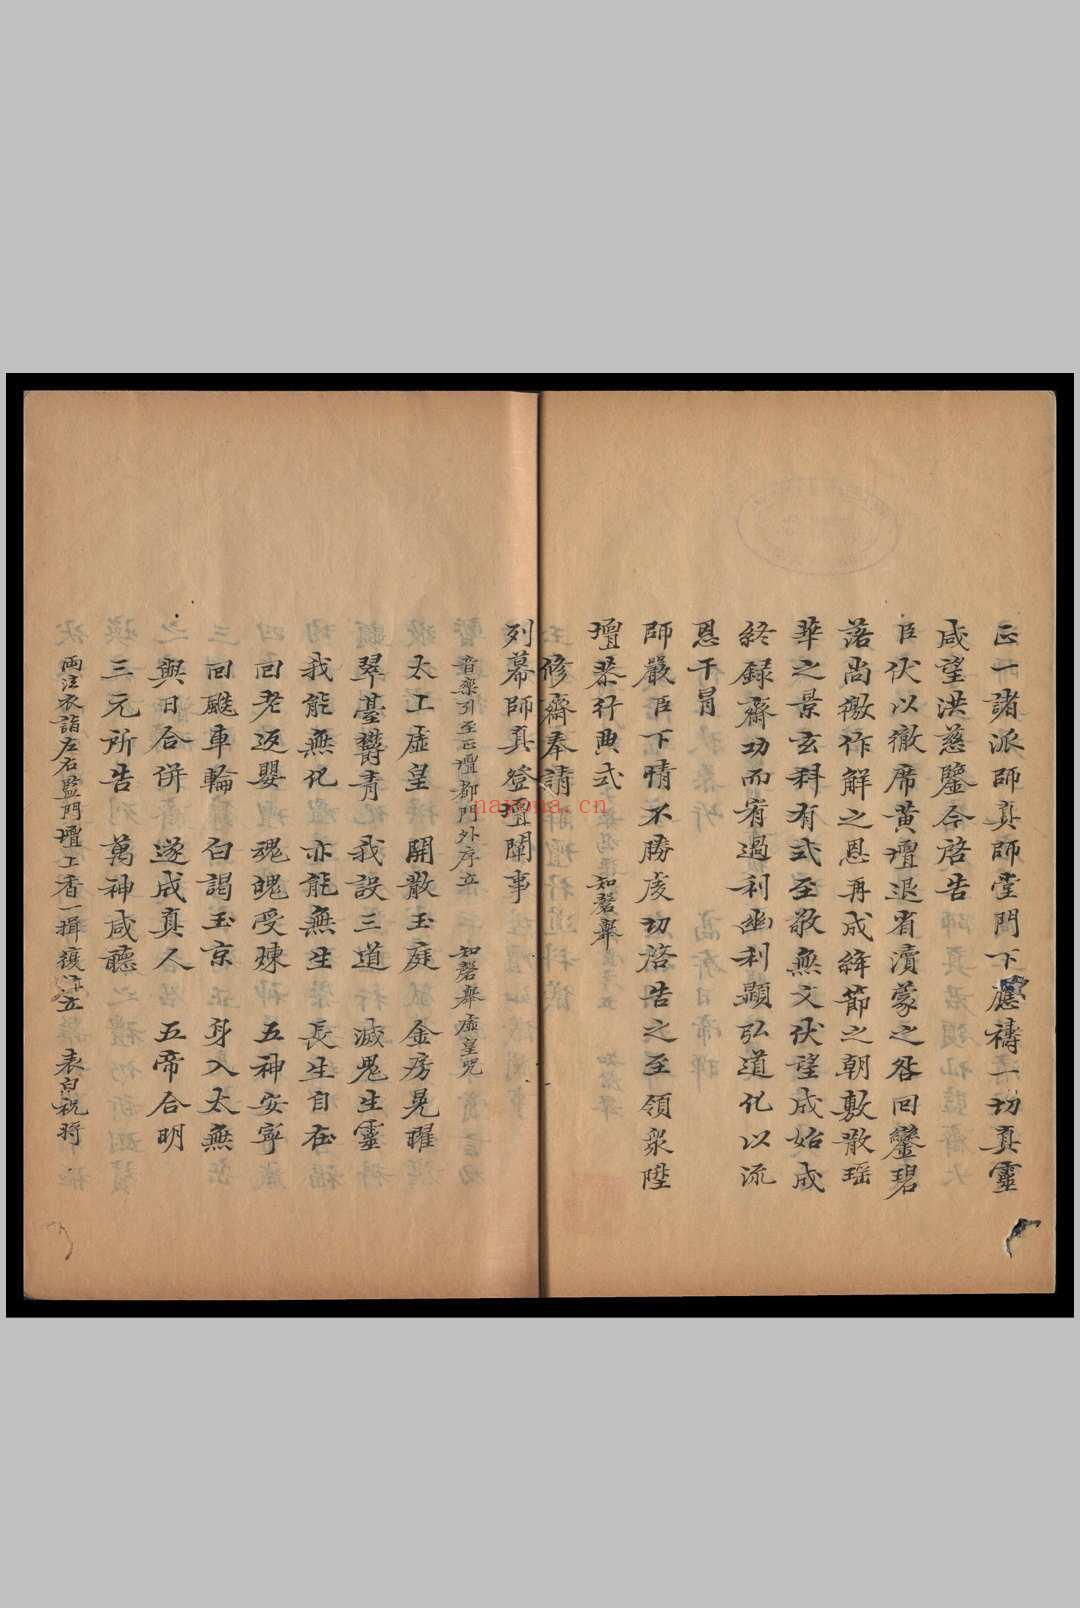 正一諸派師真師堂門下應禱一切真靈
咸望洪慈鑒今啓告
臣伏以徹席黃壇退省瀆蒙之咎回鑾碧
落尚徼作解之恩再成絳節之朝敷散瑶
華之景玄科有式至敬無文伏望成始成
終録齋功而宥過利幽利顯弘道化以流
恩干冒
師嚴臣下情不勝虔切啓告之至領衆陞
壇恭行典式 知磬舉
修齋奉請
列幕師真登壇闡事
音樂引至正壇都門外序立 知磬舉虛皇咒
太上虛皇 開散玉庭 金房晃曜
翠臺欝青 我設三道 滅鬼生靈
我能無化 亦能無生 長生自在
回老返嬰 魂魄受煉 五神安寧
回飈車輪 白謁玉京 身入太無
與日合併 遂成真人 五帝合明
三元所告 萬神咸聽
両法衣詣左右監門壇上香一揖復位 表白祝將
nayona.cn